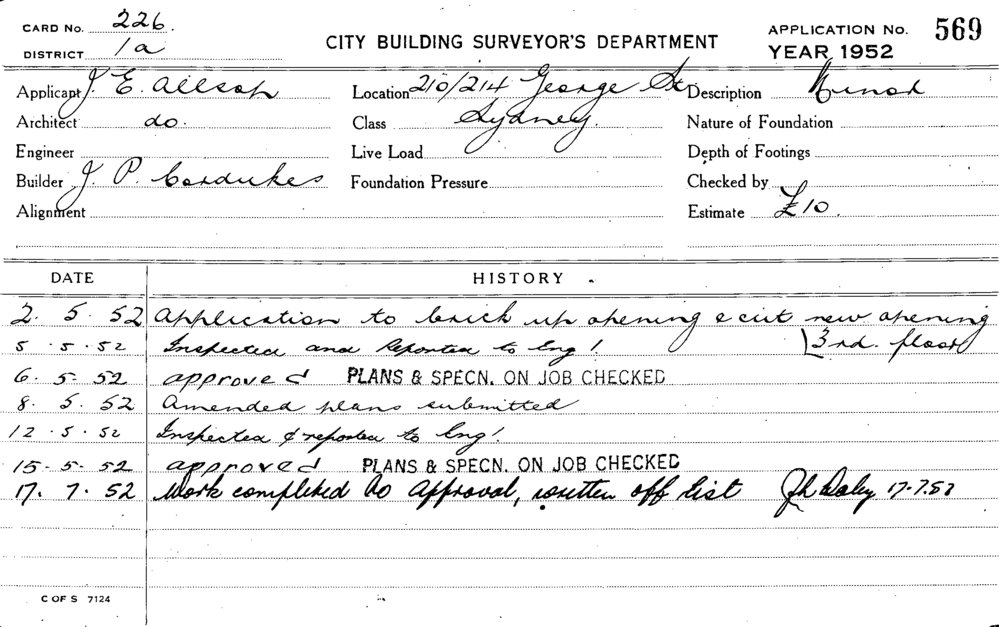 CARD No. 226. CITY BUILDING SURVEYOR'S DEPARTMENT APPLICATION No. 569
DISTRICT 1a YEAR 1952
Applicant J. E. Allsop Location 210/214 George St Description Minor
Architect do. Class Sydney. Nature of Foundation
Engineer Live Load Depth of Footings
Builder J. P. Cordukes Foundation Pressure Checked by
Alignment Estimate £10.
DATE HISTORY
2. 5. 52 Application to brick up opening & cut new opening
5. 5. 52 Inspected and Reported to Eng! [3rd. floor
6. 5. 52 approved PLANS & SPECN. ON JOB CHECKED
8. 5. 52 Amended plans submitted
12. 5. 52 Inspected & reported to Eng!
15. 5. 52 approved PLANS & SPECN. ON JOB CHECKED
17. 7. 52 Work completed to approval, written off list Daley 17.7.52
C OF S 7124